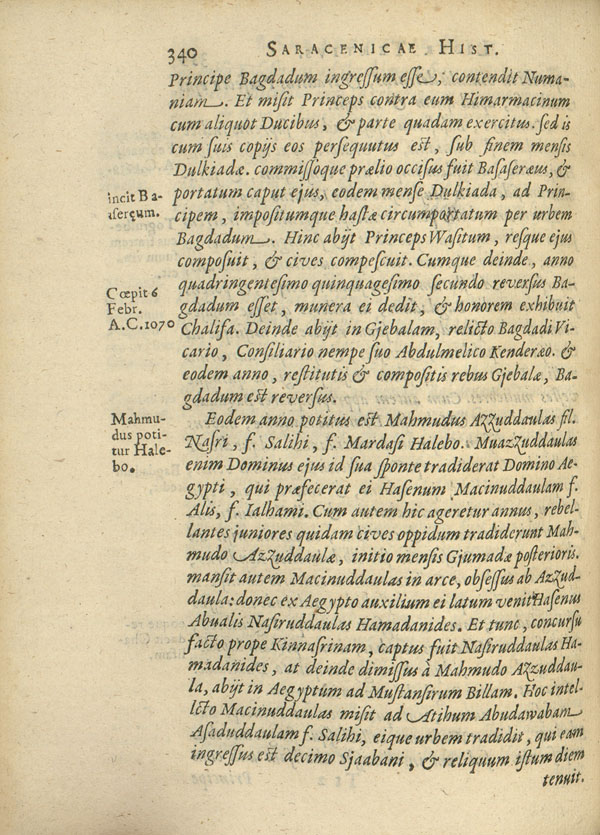 340 SARACENICAE HIST.
Principe Bagdadum ingressum esse, contendit Numa-
niam. Et misit Princeps contra eum Himarmacinum
cum aliquot Ducibus, & parte quadam exercitus. sed is
cum suis copijs eos persequutus est, sub finem mensis
Dulkiadæ. commissoque prælio occisus fuit Basaseræus, &
portatum caput ejus, eodem mense Dulkiada, ad Prin-
cipem, impositumque hastæ circumportatum per urbem
Bagdadum. Hinc abijt Princeps Wasitum, resque ejus
composuit, & cives compescuit. Cumque deinde, anno
quadringentesimo quinquagesimo secundo reversus Ba-
gdadum esset, munera ei dedit, & honorem exhibuit
Chalifa. Deinde abijt in Gjebalam, relicto Bagdadi Vi-
cario, Consiliario nempe suo Abdulmelico Kenderæo. &
eodem anno, restitutis & compositis rebus Gjebalæ, Ba-
gdadum est reversus.
Eodem anno potitus est Mahmudus Azzuddaulas fil.
Nasri, f. Salihi, f. Mardasi Halebo. Muazzuddaulas
enim Dominus ejus id sua sponte tradiderat Domino Ae-
gypti, qui præfecerat ei Hasenum Macinuddaulam f.
Alis, f. Ialhami. Cum autem hic ageretur annus, rebel-
lantes juniores quidam cives oppidum tradiderunt Mah-
mudo Azzuddaulæ, initio mensis Gjumadæ posterioris.
mansit autem Macinuddaulas in arce, obsessus ab Azzud-
daula: donec ex Aegypto auxilium ei latum venit Hasenus
Abualis Nasiruddaulas Hamadanides. Et tunc, concursu
facto prope Kinnasrinam, captus fuit Nasiruddaulas Ha-
madanides, at deinde dimissus à Mahmudo Azzuddau-
la, abijt in Aegyptum ad Mustansirum Billam. Hoc intel-
lecto Macinuddaulas misit ad Atihum Abudawabam
Asaduddaulam f. Salihi, eique urbem tradidit, qui eam
ingressus est decimo Sjaabani, & reliquum istum diem
tenuit.
incit Ba-
aseræum.
Cœpit 6
Febr.
A.C. 1070
Mahmu-
dus poti-
tur Hale-
bo.